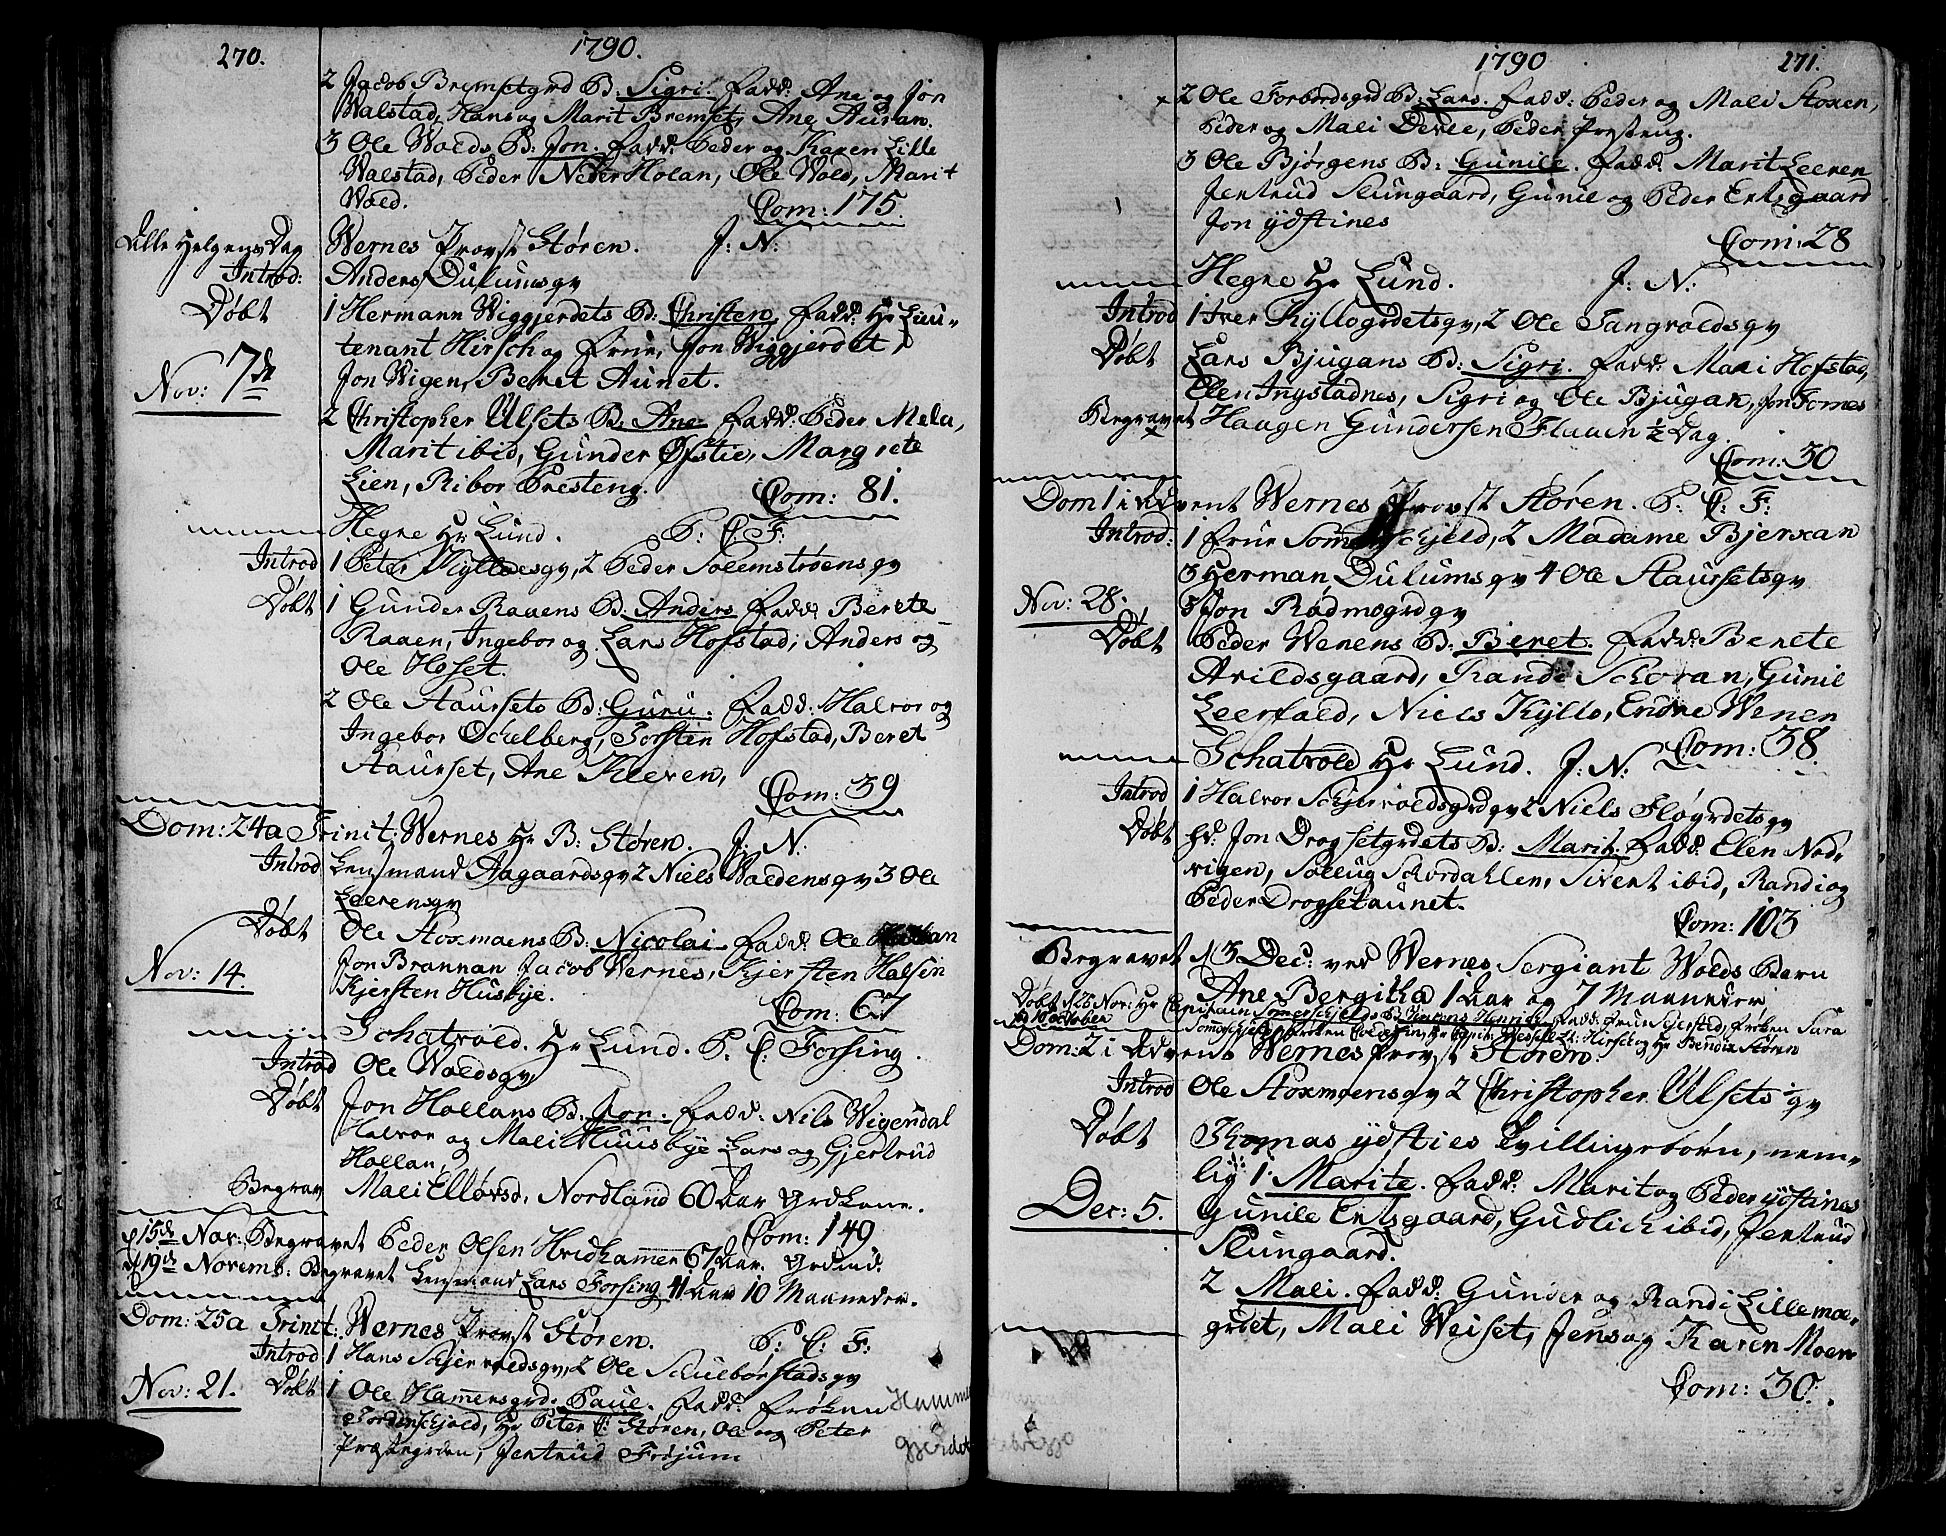 270.
1790.
2 Jacob Bremsetgrd B: Sigri. Fadd: Ane og Jon
Walstad, Hans og Marit Bremset, Ane Auran.
3 Ole Wolds B: Jon. Fadd: Peder og Karen Lille
Walstad, Peder Neder Holan, Ole Wold, Marit
Wold.
Com: 175.
Alle Helgens Dag Wernes Provst Støren. J: N:
Introd: Anders Dulumsgv
Døbt 1 Hermann Wiggjerdets B: Christen. Fadd: Hr Lieu-
tenant Hirsch og Frue, Jon Wiggjerdet,
Nov: 7de Jon Wigen, Beret Aunet.
2 Christopher Ulsets B. Ane Fadd: Peder Mela,
Marit ibid, Gunder Øfstie, Margrete
Lien, Ribor Presteng.
Com: 81.
Hegre Hr Lund. P: C: F:
Introd 1 Peter Kylloesgv, 2 Peder Solemstrøensgv
Døbt 1 Gunder Raaens B: Anders Fadd: Berete
Raaen, Ingebor og Lars Hofstad, Anders og
Ole Hoset.
2 Ole Staursets B: Guru. Fadd: Halvor og
Ingebor Öchelberg, Torsten Hofstad, Beret
Staurset, Ane Kleven,
Com: 39
Dom: 24a Trinit: Wernes Hr B: Støren. J: N:
Introd Lensmand Aagaardsgv 2 Niels Waldensgv 3 Ole
Leerensgv
Døbt Ole Stoxmoens B: Nicolai Fadd: Ole
Nov: 14. Jon Brannan Jacob Wernes, Kjersten Halsen
Kjersten Husbye.
Com: 67
Schatvold. Hr Lund. P. C: Forsing.
Introd Ole Woldsgv
Døbt Jon Hollans B: Jon. Fadd: Nils Wigendal
Halvor og Mali Huusbye Lars og Gjertrud
Hollan,
Begrav Mali Ellevsd, Nordland 60 Aar
Com: 149
d 15de Nov: Begravet Peder Olsen Hvidhamer 67 Aar.
d 19de Novemb: Begravet Lensmand Lars Forsing 41 Aar 10 Maaneder.
Dom: 25a Trinit: Wernes Provst Støren. P: C: F:
Introd 1 Hans Schjervoldsgv, 2 Ole Schulbørstadsgv
Nov: 21. Døbt 1 Ole Hamersgrd: Paul. Fadd: Frøken
Tordenschjold, Hr Peter C: Støren, Ole og Peter
Præstegrden, Jertrud Frøjum
Hammer
gjerdet
1790
271.
2 Ole Forbordsgrd B: Lars. Fadd: Peder og Mali Stoxen,
Peder og Mali Devle, Peder Presteng.
3 Ole Bjørgens B: Gunile. Fadd: Marit Leeren
Jertrud Slungaard, Gunil og Peder Ertsgaard
Jon Ydstines
Com: 28
Hegre Hr Lund. J: N:
Introd 1 Iver Kyllogrdetsgv, 2 Ole Tangvoldsgv
Døbt Lars Bjugans B: Sigri. Fadd: Mali Hofstad,
Elen Ingstadnes, Sigri og Ole Bjugan, Jon Fornes
Begravet Haagen Gundersen Flaaen ½ Dag.
Com: 30
Dom 1 i Advent Wernes Provst Støren. P: C: F:
Introd: 1 Frue Somerschjeld, 2 Madame Bjerkan
3 Herman Dulumsgv 4 Ole Staursetsgv
Nov: 28. 5 Jon Rødmogrdgv
Døbt Peder Werens B: Beret. Fadd: Berete
Arildsgaard, Randi Schoran, Gunil
Leerfald, Niels Kyllo, Endre Weren
Com: 38.
Schatvold Hr Lund. J: N:
Introd 1 Halvor Schjervoldsgrdgv 2 Niels Fløgrdetsgv
Døbt Jon Drogsetgrdets B: Marit. Fadd: Elen Nord-
vigen, Solleug Schordahlen, Sivert ibid, Randi og
Peder Drogsetaunet.
Com: 103
Begravet d 3 Dec: ved Wernes Sergiant Wolds Barn
Ane Bergitha 1 Aar og 7 Maaneder
Døbt d 26 Nov: Hr Capitain Somerschjelds B: Henrich Fadd: Frue Schjersted, Frøken Sara
Somerschjeld, Frøken Hr Capit: Wessel Lt: Hirsch og Hr Bendix Støren
Dom: 2 i Advent Wernes Provst Støren
Introd Ole Stoxmoensgv 2 Christopher Ulsets gv
Døbt Thomas Ydsties Tvillingebørn, nem-
lig: 1. Marite. Fadd: Marit og Peder Ydstines
Dec: 5. Gunile Ertsgaard, Gudlich ibid, Jertrud
Slungaard.
2 Mali. Fadd: Gunder og Randi Lillemoe-
grdet, Mali Weiset, Jens og Karen Moen
Com: 30.